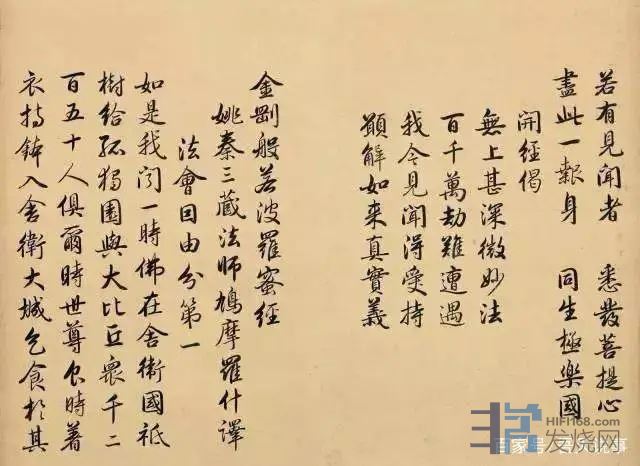 若有見聞者 悉發菩提心
盡此一報身 同生極樂國
開經偈
無上甚深微妙法
百千萬劫難遭遇
我今見聞得受持
願解如来真實義
金剛般若波羅蜜經
姚秦三蔵法師鳩摩羅什譯
法會因由分第一
如是我聞一時佛在舎衛國祇
樹給孤獨園與大比丘衆千二
百五十人俱爾時世尊食時著
衣持鉢入舎衛大城乞食於其
HIFI168.com
发烧网
百家号